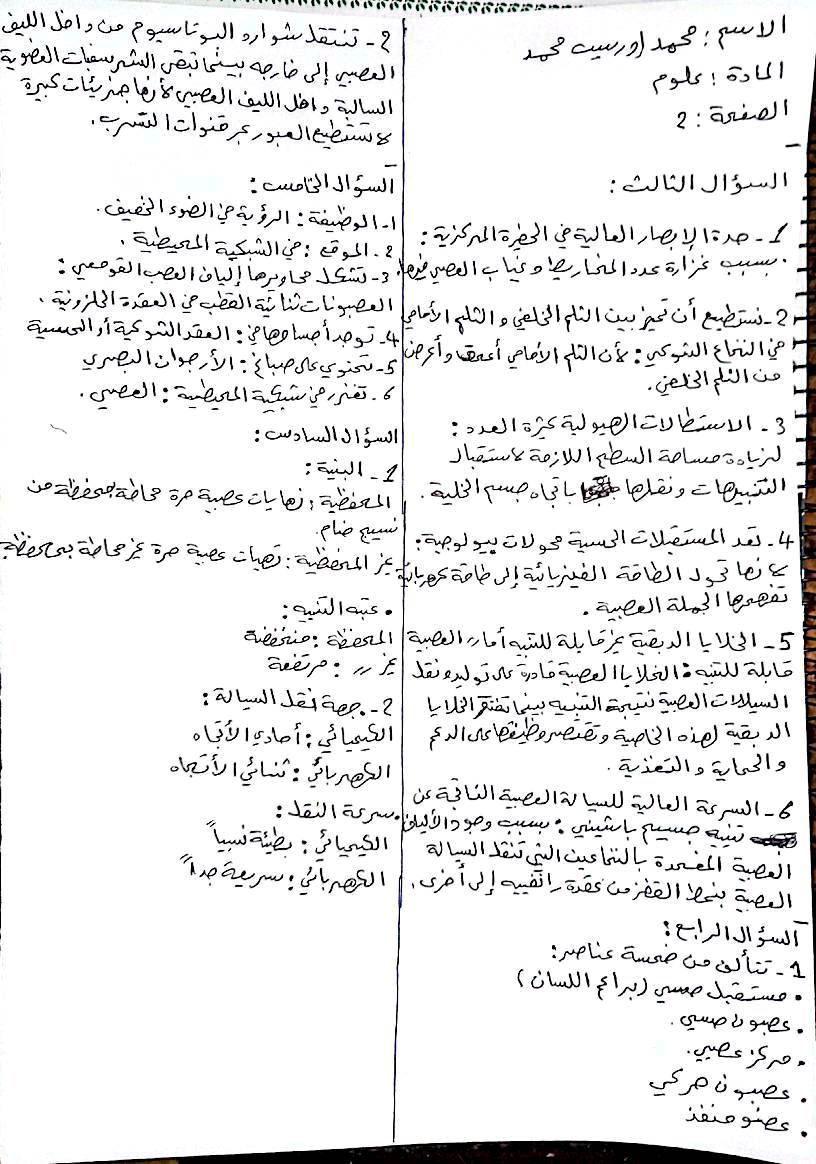 الاسم : محمد اورسيت محمد
المادة : علوم
الصفحة : 2
السؤال الثالث :
1- حدة الإبصار العالية في الحفرة المركزية :
بسبب غزارة عدد المخاريط و غياب العصي فيها.
2- نستطيع أن نميز بين الثلم الخلفي و الثلم الأمامي
في النخاع الشوكي : لأن الثلم الأمامي أعمق و أعرض
من الثلم الخلفي.
3- الاستطالات الهيولية كثيرة العدد :
لزيادة مساحة السطح اللازمة لاستقبال
التنبيهات و نقلها باتجاه جسم الخلية .
4- تعد المستقبلات الحسية محولات بيولوجية :
لانها تحول الطاقة الفيزيائية إلى طاقة كهربائية
تفهمها الجملة العصبية .
5- الخلايا الدبقية غير قابلة للتنبه أما العصبية
قابلة للتنبه : الخلايا العصبية قادرة على توليد و نقل
السيالات العصبية نتيجة التنبيه بينما تفتقر الخلايا
الدبقية لهذه الخاصية و تقتصر وظيفتها على الدعم
و الحماية و التغذية .
6- السرعة العالية للسيالة العصبية الناتجة عن
تنبيه جسيم باشيني : بسبب وجود الألياف
العصبية المغمدة بالنخاعين التي تنقل السيالة
العصبية بنمط القفز من عقدة رانفييه إلى أخرى .
السؤال الرابع :
1- تتألف من خمسة عناصر :
• مستقبل حسي (براعم اللسان)
• عصبون حسي .
• مركز عصبي .
• عصبون حركي
• عضو منفذ
2- تنتقل شوارد البوتاسيوم من داخل الليف
العصبي إلى خارجه بينما تبقى الشرسبات العضوية
السالبة داخل الليف العصبي لأنها جزيئات كبيرة
لا تستطيع العبور عبر قنوات التسرب .
السؤال الخامس :
1- الوظيفة : الرؤية في الضوء الخفيف .
2- الموقع : في الشبكية المحيطية .
3- تشكل محاويرها إلياف العصب القوقعي :
العصبونات ثنائية القطب في العقدة الحلزونية .
4- توجد أجسامها في : العقد الشوكية أو الحسية
5- تحتوي على صباغ : الأرجوان البصري
6- تغزر في شبكية المحيطية : العصي .
السؤال السادس :
1- البنية :
المحفظية : نهايات عصبية حرة محاطة بمحفظة من
نسيج ضام .
غير المحفظية : نهيات عصبية حرة غير محاطة بمحفظة
• عتبه التنبيه :
المحفظة : منخفضة
غير // : مرتفعة
2- • جهة نقل السيالة :
الكيميائي : أحادي الأتجاه
الكهربائي : ثنائي الأتجاه
• سرعة النقل :
الكيميائي : بطيئة نسبياً
الكهربائي : سريعة جداً